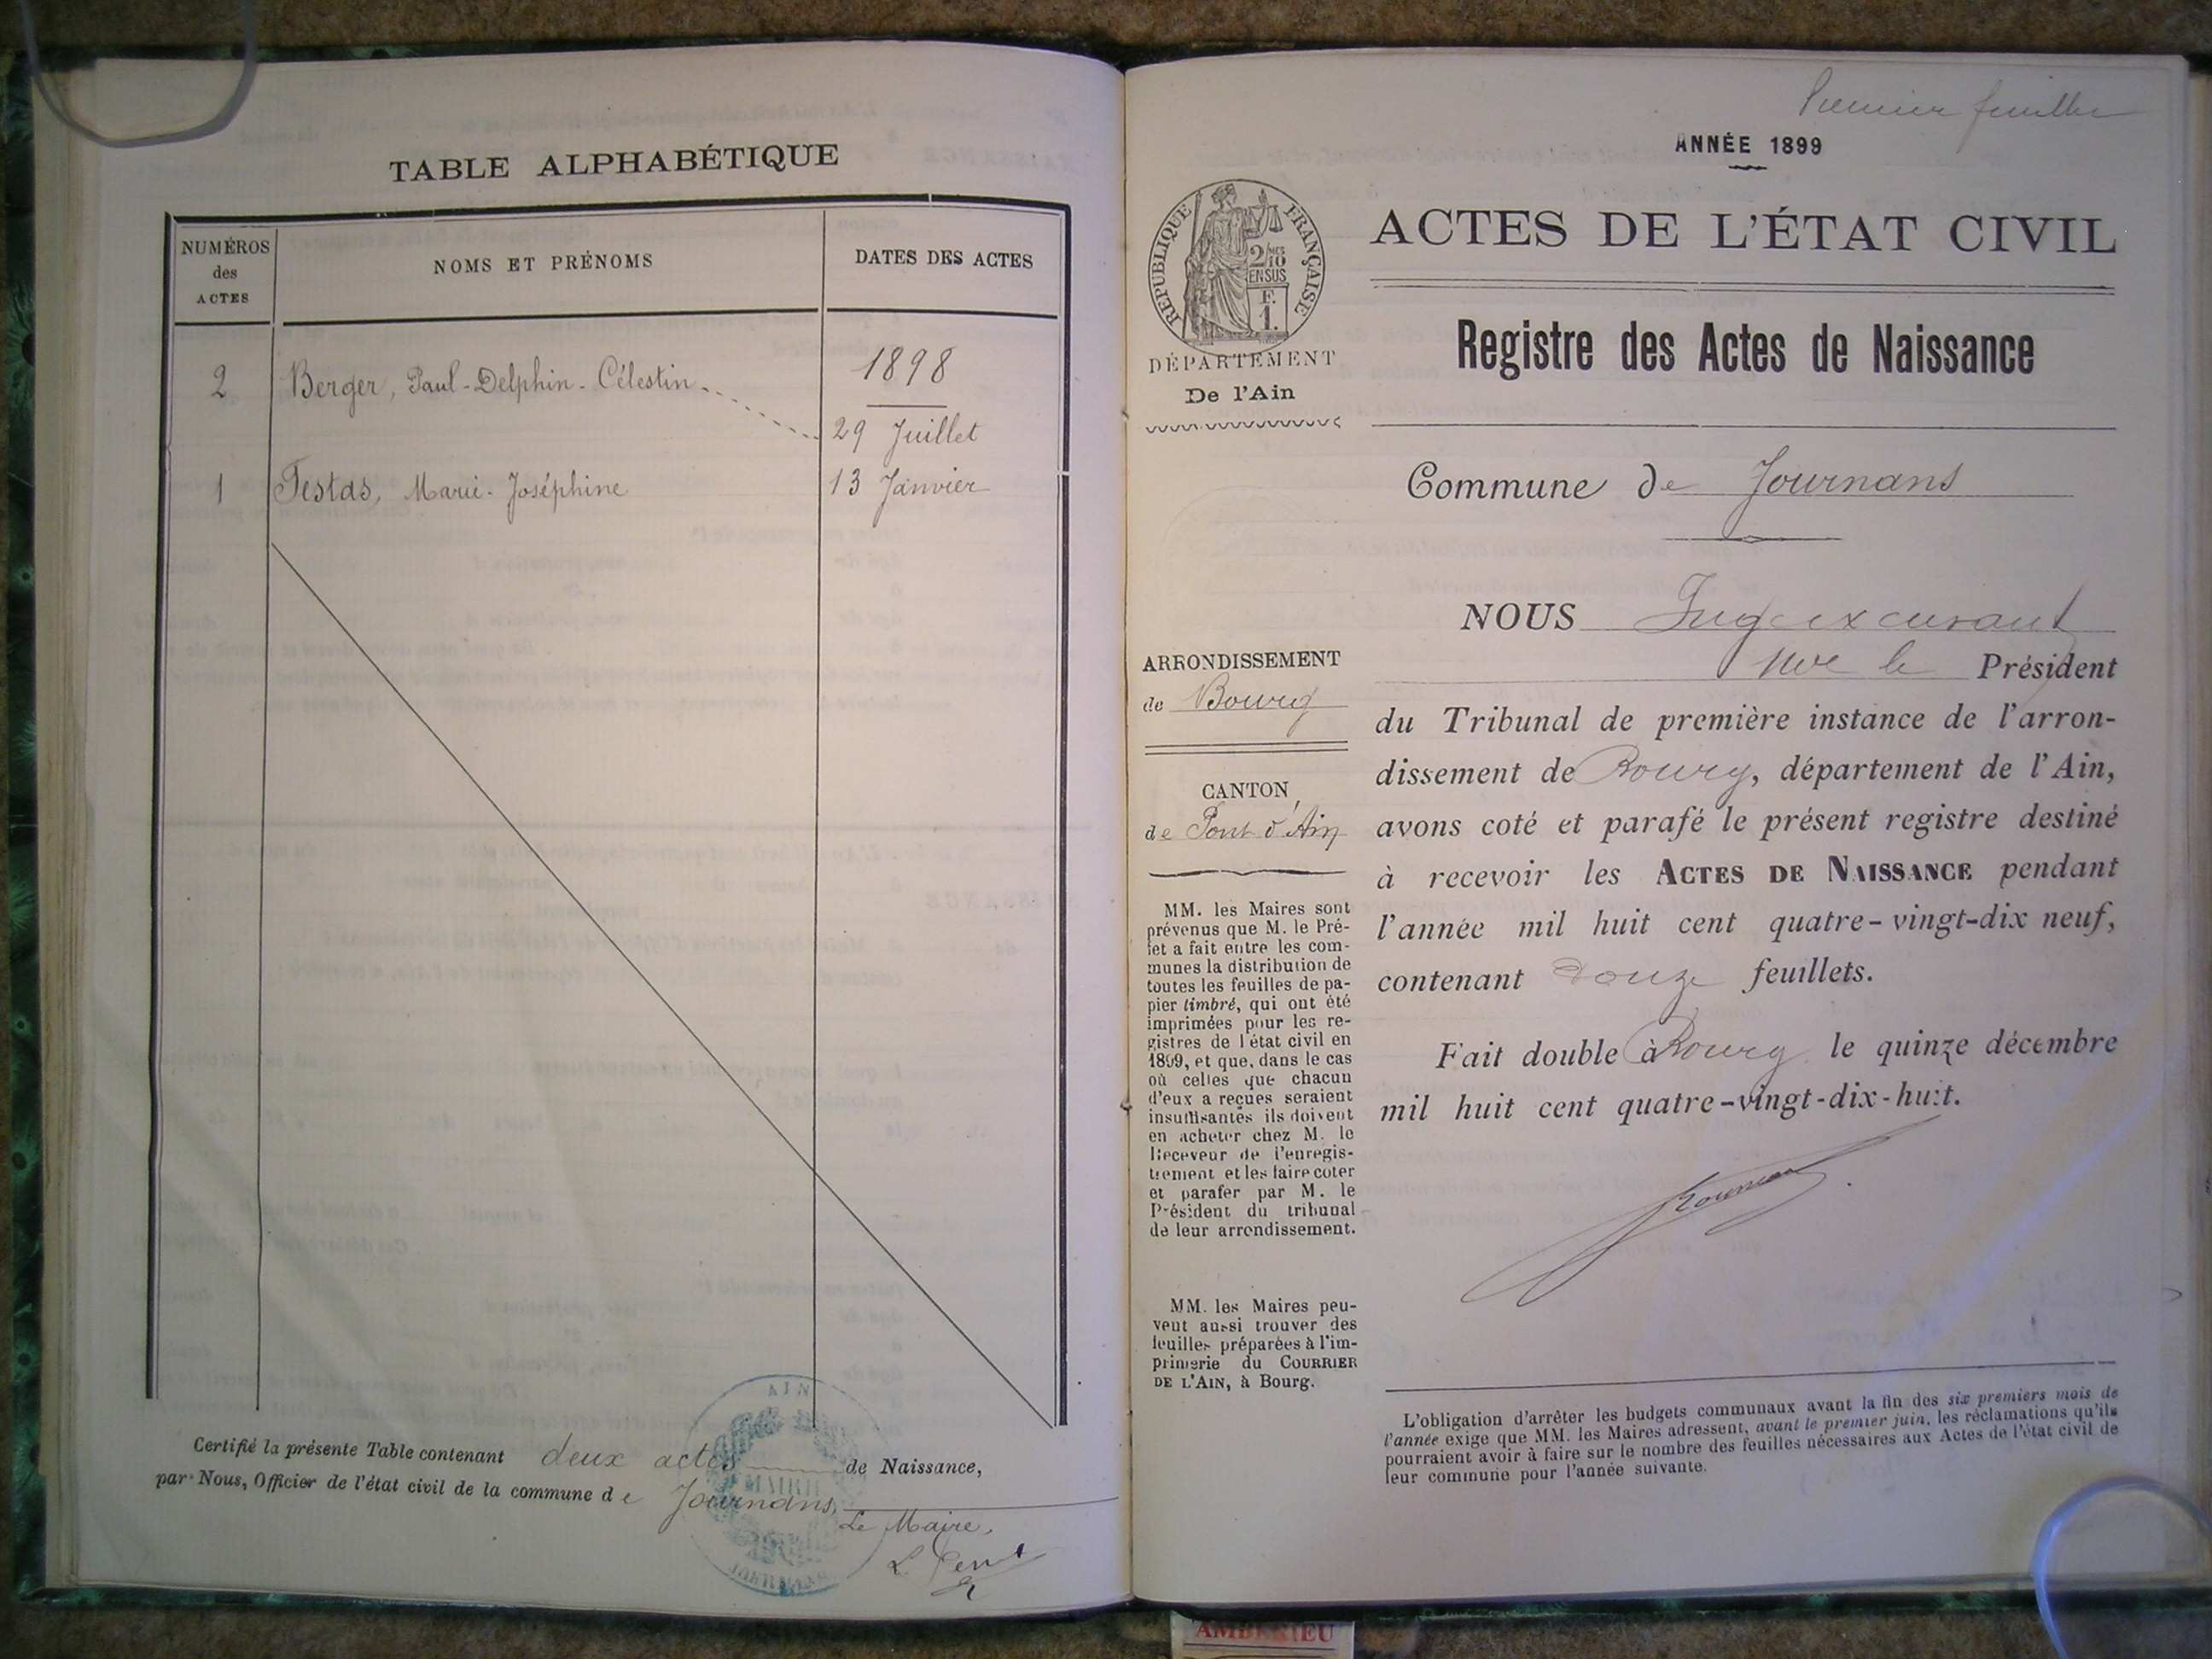 TABLE ALPHABÉTIQUE
NUMÉROS
des
ACTES
NOMS ET PRÉNOMS
DATES DES ACTES
1898
2 Berger, Paul-Delphin-Célestin
29 Juillet
1 Testas, Marie-Joséphine 13 Janvier
Certifié la présente Table contenant deux actes de Naissance,
par Nous, Officier de l'état civil de la commune de Journans,
Le Maire,
AIN
MAIRIE
Premier feuillet
ANNÉE 1899
RÉPUBLIQUE FRANÇAISE
2/10
EN SUS
F.
1.
DÉPARTEMENT
De l'Ain
ACTES DE L'ÉTAT CIVIL
Registre des Actes de Naissance
Commune de Journans
ARRONDISSEMENT
de Bourg
CANTON
de Pont d'Ain
MM. les Maires sont
prévenus que M. le Pré-
fet a fait entre les com-
munes la distribution de
toutes les feuilles de pa-
pier timbré, qui ont été
imprimées pour les re-
gistres de l'état civil en
1899, et que, dans le cas
où celles que chacun
d'eux a reçues seraient
insuffisantes ils doivent
en acheter chez M. le
Receveur de l'enregis-
trement et les faire coter
et parafer par M. le
Président du tribunal
de leur arrondissement.
MM. les Maires peu-
vent aussi trouver des
feuilles préparées à l'im-
primerie du COURRIER
DE L'AIN, à Bourg.
NOUS Juge ex cusant
le Président
du Tribunal de première instance de l'arron-
dissement de Bourg, département de l'Ain,
avons coté et parafé le présent registre destiné
à recevoir les ACTES DE NAISSANCE pendant
l'année mil huit cent quatre-vingt-dix neuf,
contenant douze feuillets.
Fait double à Bourg le quinze décembre
mil huit cent quatre-vingt-dix-huit.
L'obligation d'arrêter les budgets communaux avant la fin des six premiers mois de
l'année exige que MM. les Maires adressent, avant le premier juin, les réclamations qu'ils
pourraient avoir à faire sur le nombre des feuilles nécessaires aux Actes de l'état civil de
leur commune pour l'année suivante.
AMBERIEU